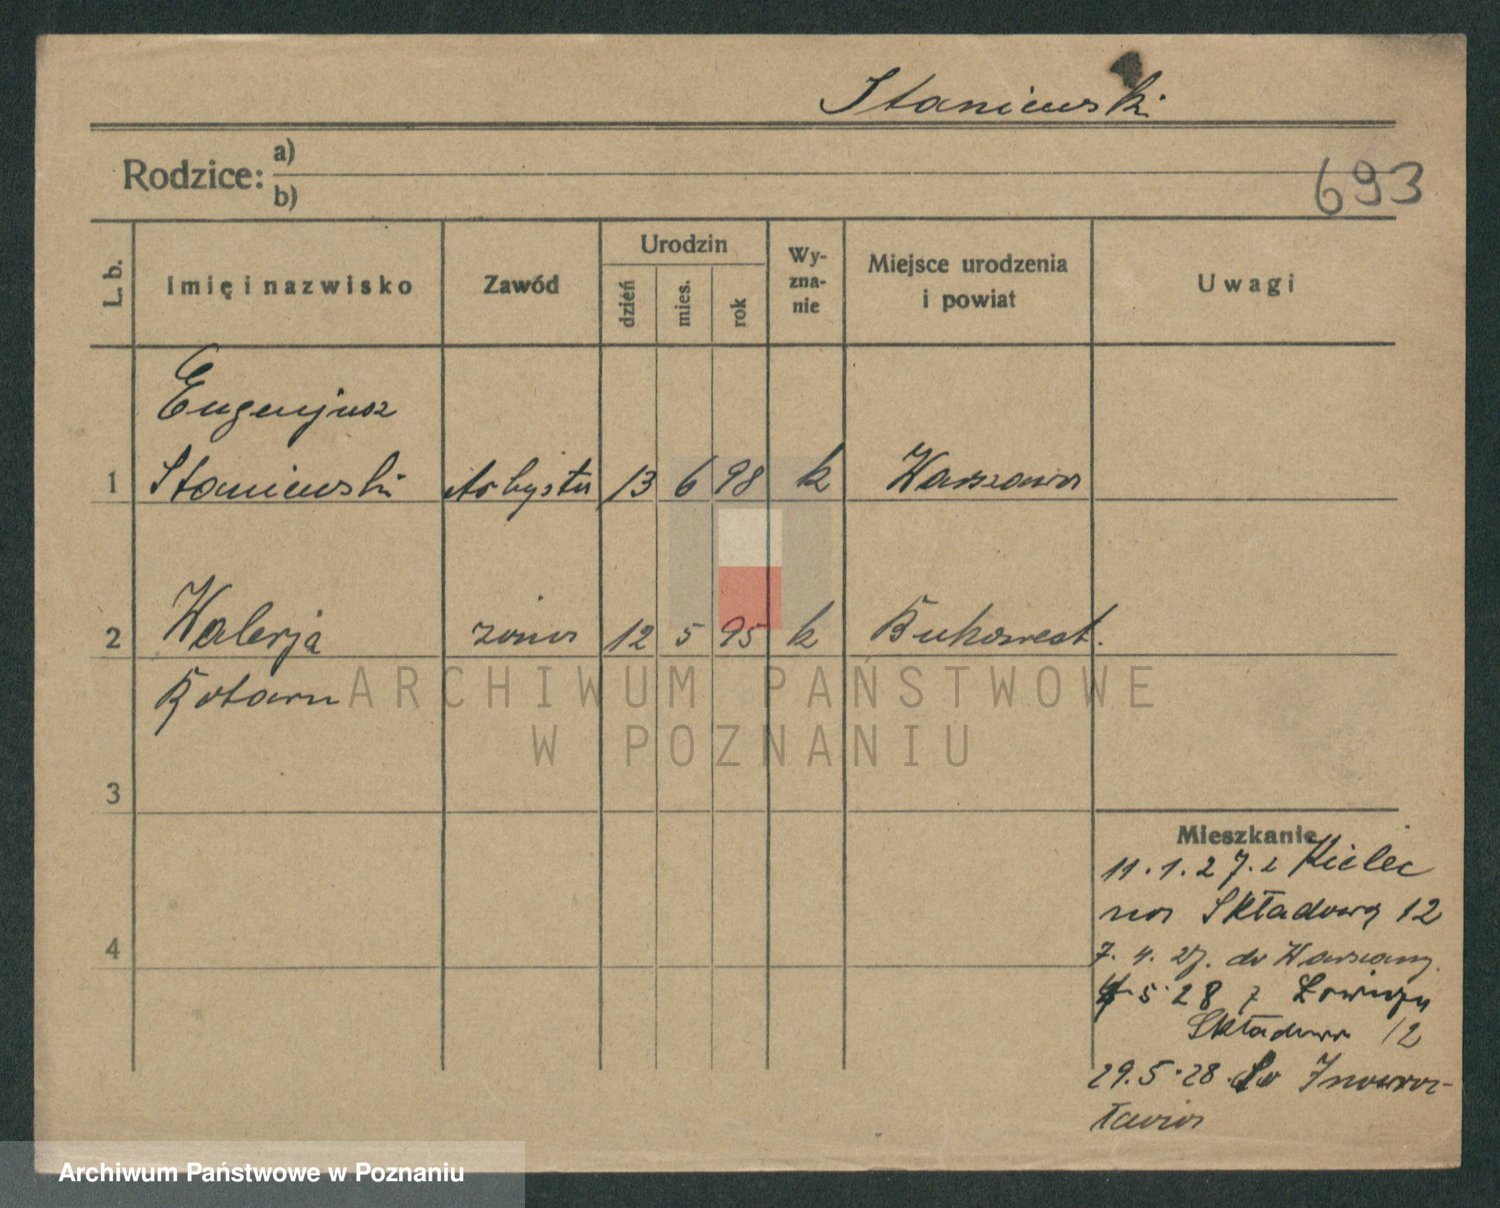 Staniewski
Rodzice: a)
b)
693
L. b.
Imię i nazwisko
Zawód
Urodzin
dzień
mies.
rok
Wy-
zna-
nie
Miejsce urodzenia
i powiat
Uwagi
Eugenjusz
1 Staniewski Artysta 13 6 98 k Warszawa
2 Walerja żona 12 5 95 k Bukarest.
Kotaru
3
4
Mieszkanie
11.1.27. z Kielc
na Składową 12
7. 4. 27. do Warszawy.
5.28 z Łowiczu
Składowa 12
29.5.28 do Inowroc-
ławia
ARCHIWUM PAŃSTWOWE
W POZNANIU
Archiwum Państwowe w Poznaniu